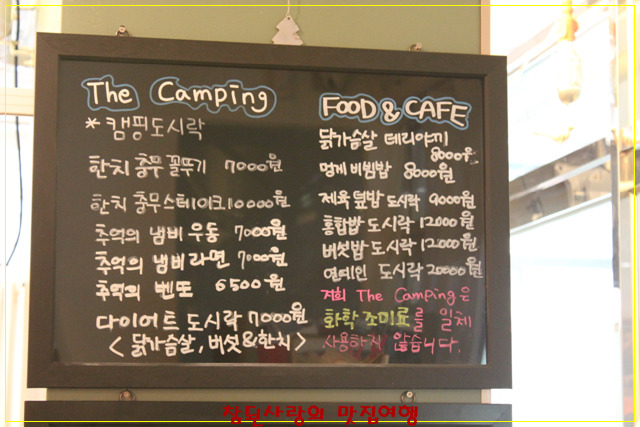 The Camping
*캠핑도시락
한치 충무 꼴뚜기 7000원
한치 충무스테이크 10000원
추억의 냄비 우동 7000원
추억의 냄비라면 7000원
추억의 벤또 6500원
다이어트 도시락 7000원
< 닭가슴살, 버섯&한치 >
FOOD & CAFE
닭가슴살 테리야끼
8000원
멍게 비빔밥 8000원
제육덮밥 도시락 9000원
홍합밥 도시락 12000원
버섯밥 도시락 12000원
연예인 도시락 20000원
저희 The Camping은
화학 조미료를 일체
사용하지 않습니다.
침본사랑의 맛집여행